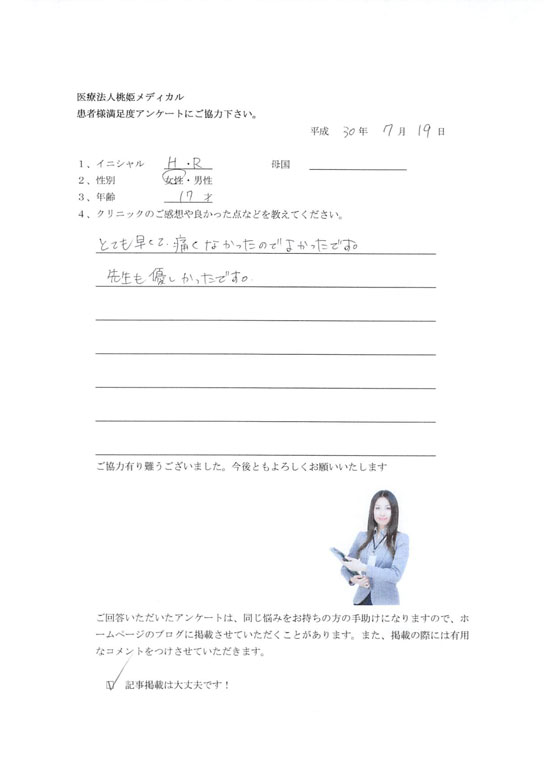 医療法人桃姫メディカル
患者様満足度アンケートにご協力下さい。
平成 30 年 7 月 19 日
1、イニシャル H・R 母国
2、性別 女性・男性
3、年齢 17 才
4、クリニックのご感想や良かった点などを教えてください。
とても早くて、痛くなかったのでよかったです。
先生も優しかったです。
ご協力有り難うございました。今後ともよろしくお願いいたします
ご回答いただいたアンケートは、同じ悩みをお持ちの方の手助けになりますので、ホ
ームページのブログに掲載させていただくことがあります。また、掲載の際には有用
なコメントをつけさせていただきます。
☑ 記事掲載は大丈夫です!